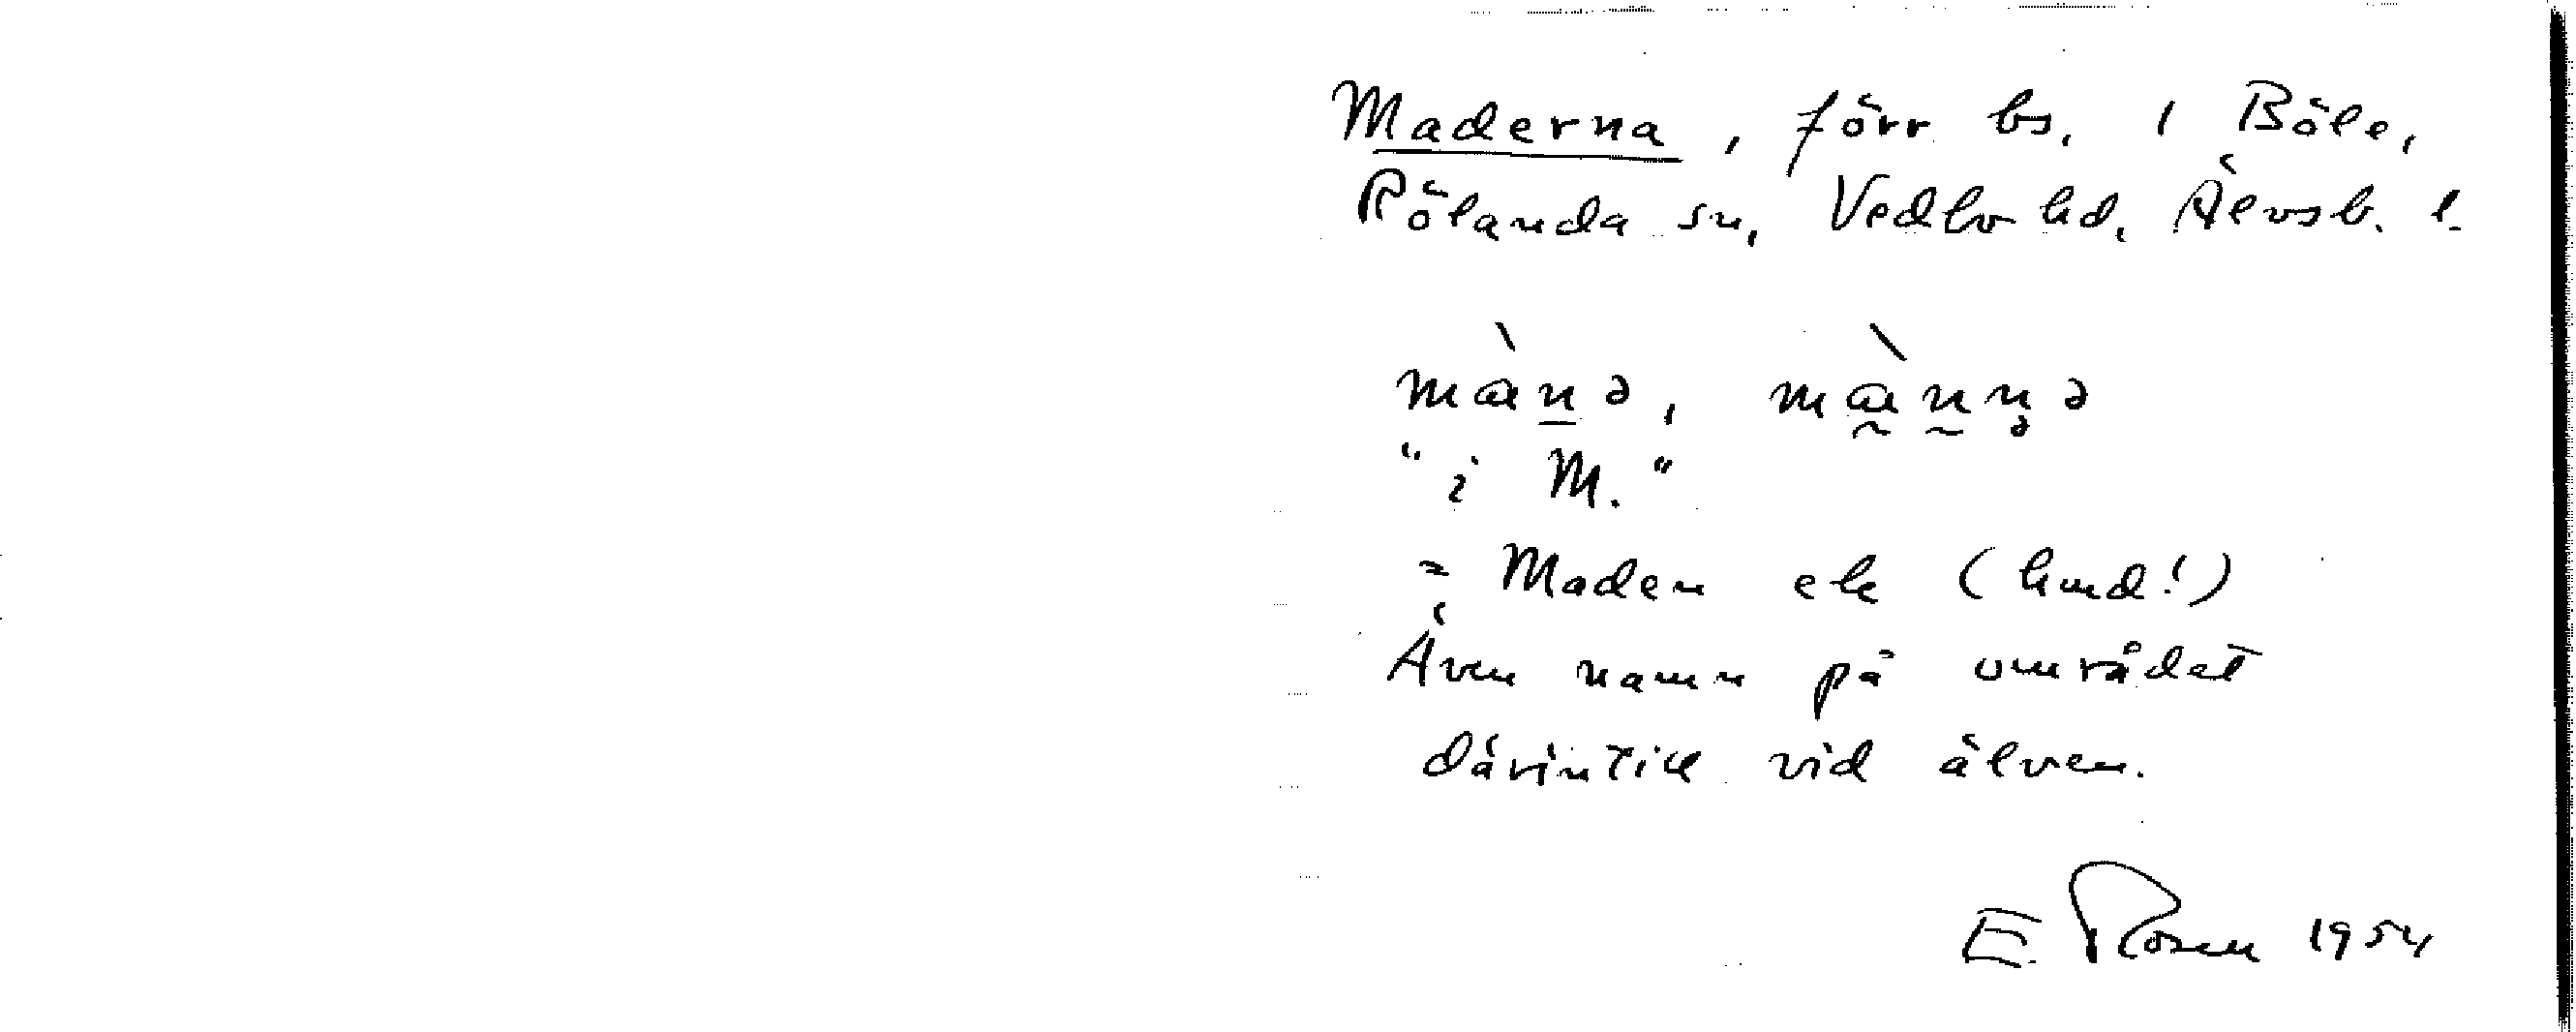 Maderna, förr bs. i Böle,
Rölanda sn, Vedbo hd, Älvsb. l.
"i M."
= Maden ek (hmd!)
Även namn på området
därintill vid älven.
E. Rosen 1954